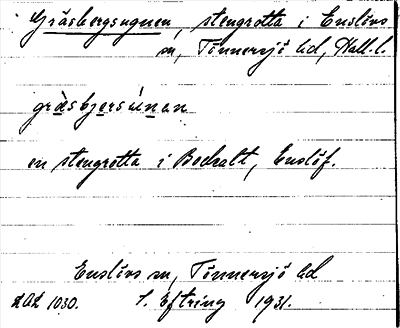 Gräsbergsugnen, stengrotta i Enslövs
sn, Tönnersjö hd, Hall. l.
gräsbjersúnan
en stengrotta i Bockalt, Enslöf.
Enslövs sn, Tönnersjö hd
LAL 1030. S. Eftring 1931.